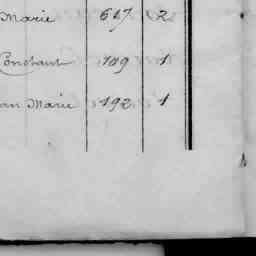 Marie 617 2
Constant 719 1
an Marie 192 1